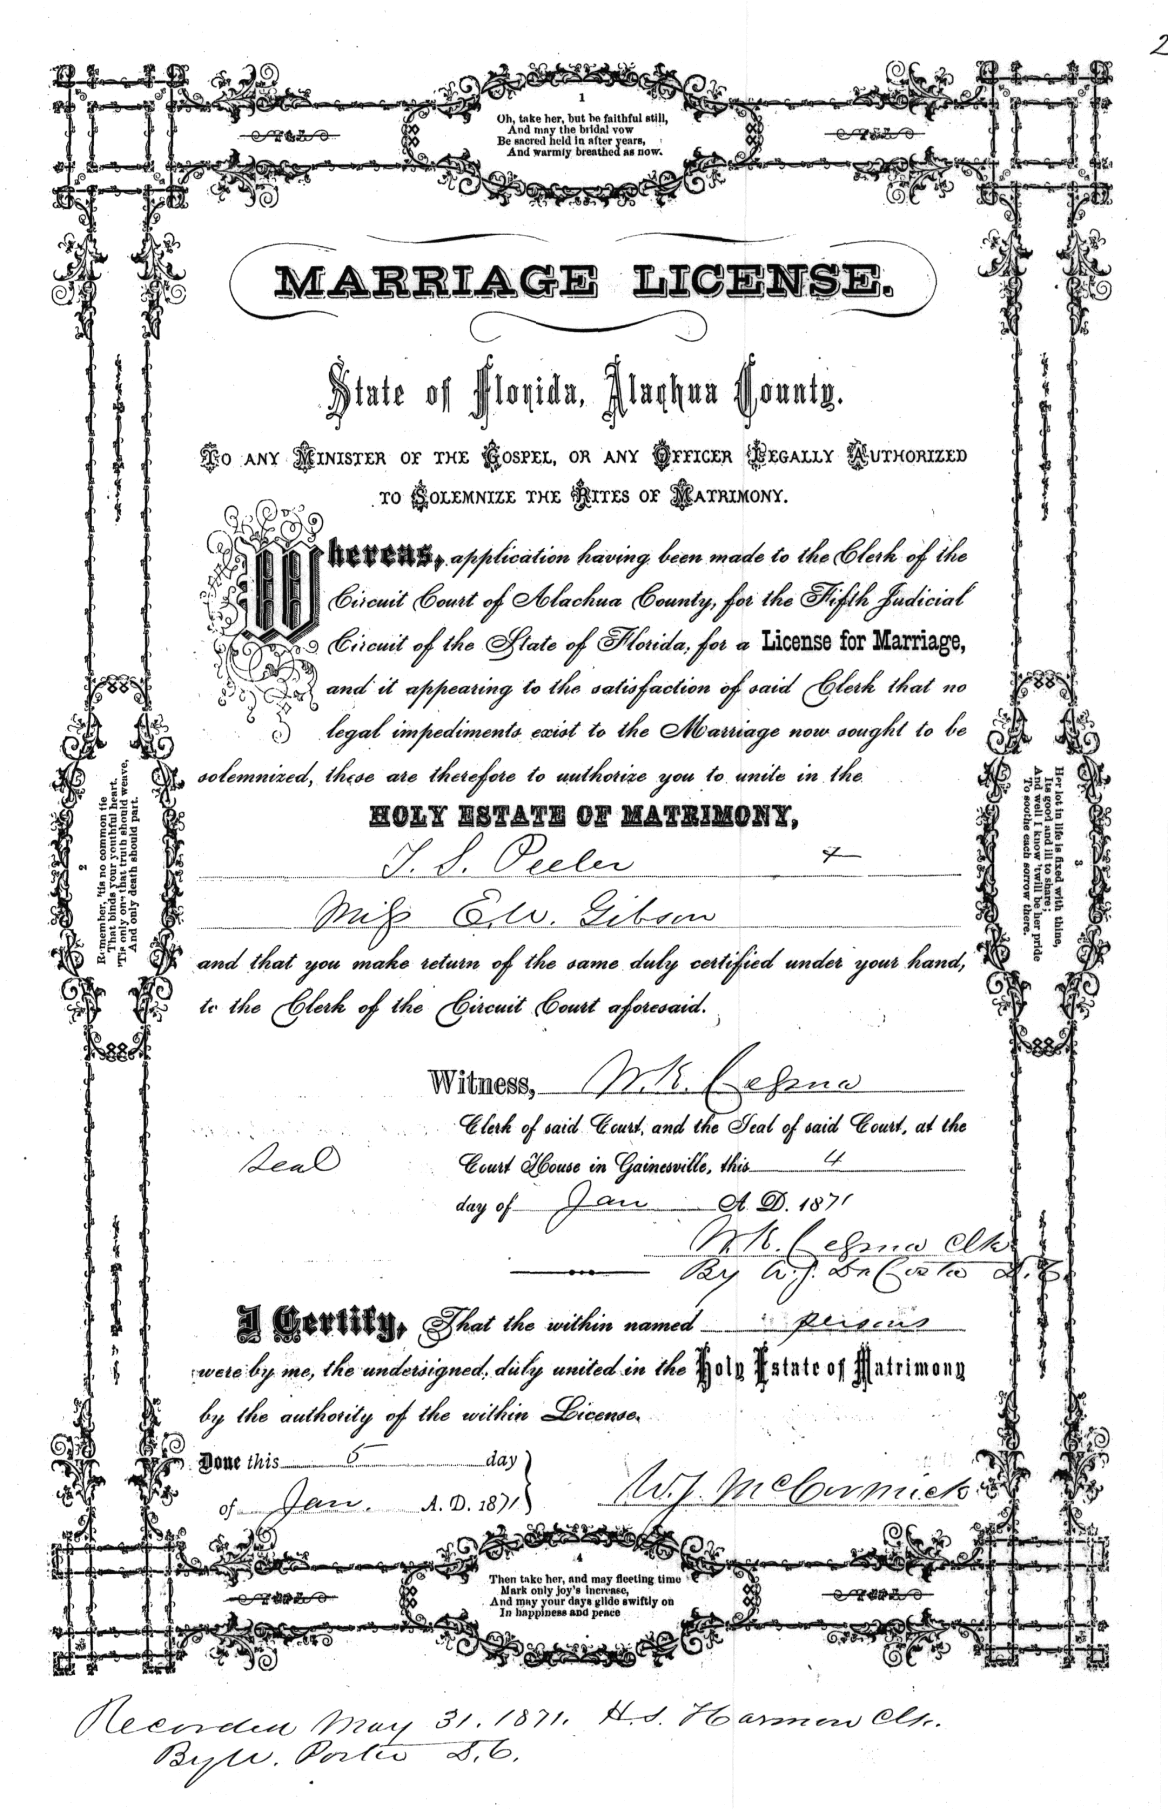 2
1
Oh, take her, but be faithful still,
And may the bridal vow
Be sacred held in after years,
And warmly breathed as now.
MARRIAGE LICENSE.
State of Florida, Alachua County.
TO ANY MINISTER OF THE GOSPEL, OR ANY OFFICER LEGALLY AUTHORIZED
TO SOLEMNIZE THE RITES OF MATRIMONY.
Whereas, application having been made to the Clerk of the
Circuit Court of Alachua County, for the Fifth Judicial
Circuit of the State of Florida, for a License for Marriage,
and it appearing to the satisfaction of said Clerk that no
legal impediments exist to the Marriage now sought to be
solemnized, these are therefore to authorize you to unite in the
HOLY ESTATE OF MATRIMONY,
T. S. Peeler &
Miss E. W. Gibson
and that you make return of the same duly certified under your hand,
to the Clerk of the Circuit Court aforesaid.
Witness, W. K. Cessna
Clerk of said Court, and the Seal of said Court, at the
Seal
Court House in Gainesville, this 4
day of Jan A. D. 1871
W. K. Cessna Clk
By A. J. DaCosta D. C.
I Certify, That the within named persons
were by me, the undersigned, duly united in the Holy Estate of Matrimony
by the authority of the within License.
Done this 5 day
of Jan. A. D. 1871
W. J. McCormick
2
Remember, 'tis no common tie
That binds your youthful heart.
'Tis only one that truth should weave,
And only death should part.
3
Her lot in life is fixed with thine,
Its good and ill to share;
And well I know 'twill be her pride
To soothe each sorrow there.
4
Then take her, and may fleeting time
Mark only joy's increase,
And may your days glide swiftly on
In happiness and peace
Recorded May 31. 1871. H. S. Harmon Clk.
By W. Porter D. C.